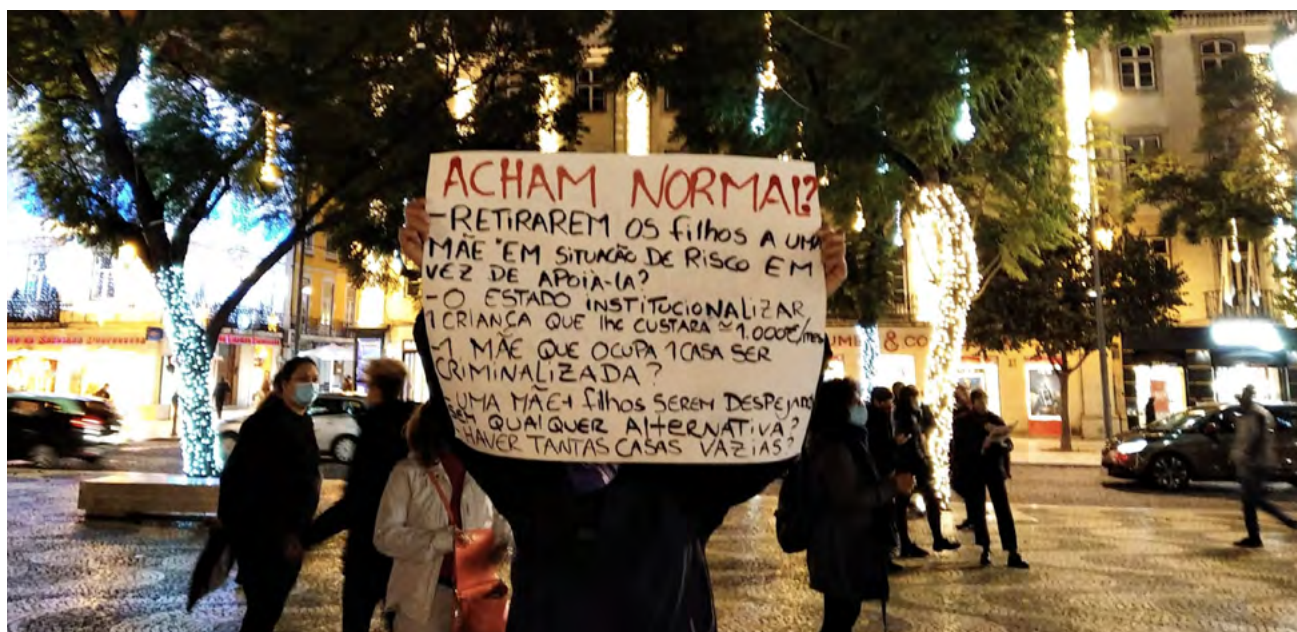 ACHAM NORMAL?
-RETIRAREM OS filhos A UMA
MÃE "EM SITUAÇÃO DE RISCO EM
VEZ DE APOIÁ-LA?
-O ESTADO INSTITUCIONALIZAR
1 CRIANÇA QUE lhe CUSTARA ≃1.000€/mês
-1 MÃE QUE OCUPA 1 CASA SER
CRIMINALIZADA?
-UMA MÃE+ filhos SEREM DESPEJADOS
SEM QUALQUER AlTERNATIVA?
-HAVER TANTAS CASAS VAZIAS?
& CO